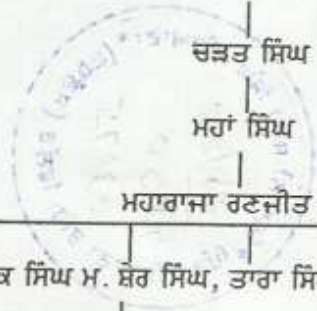 ਚੜਤ ਸਿੰਘ
ਮਹਾਂ ਸਿੰਘ
ਮਹਾਰਾਜਾ ਰਣਜੀਤ
ਕ ਸਿੰਘ ਮ. ਸ਼ੇਰ ਸਿੰਘ, ਤਾਰਾ ਸਿੰ